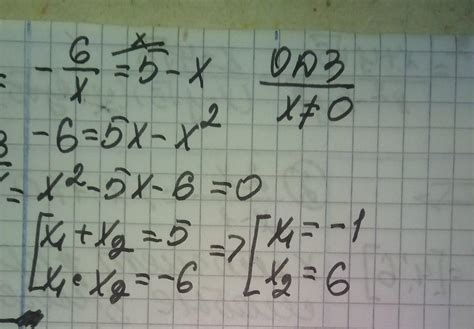 = -6/x = 5 - x
x
ОДЗ
x ≠ 0
-6 = 5x - x²
= x² - 5x - 6 = 0
[x₁ + x₂ = 5
x₁ · x₂ = -6
=> [x₁ = -1
x₂ = 6